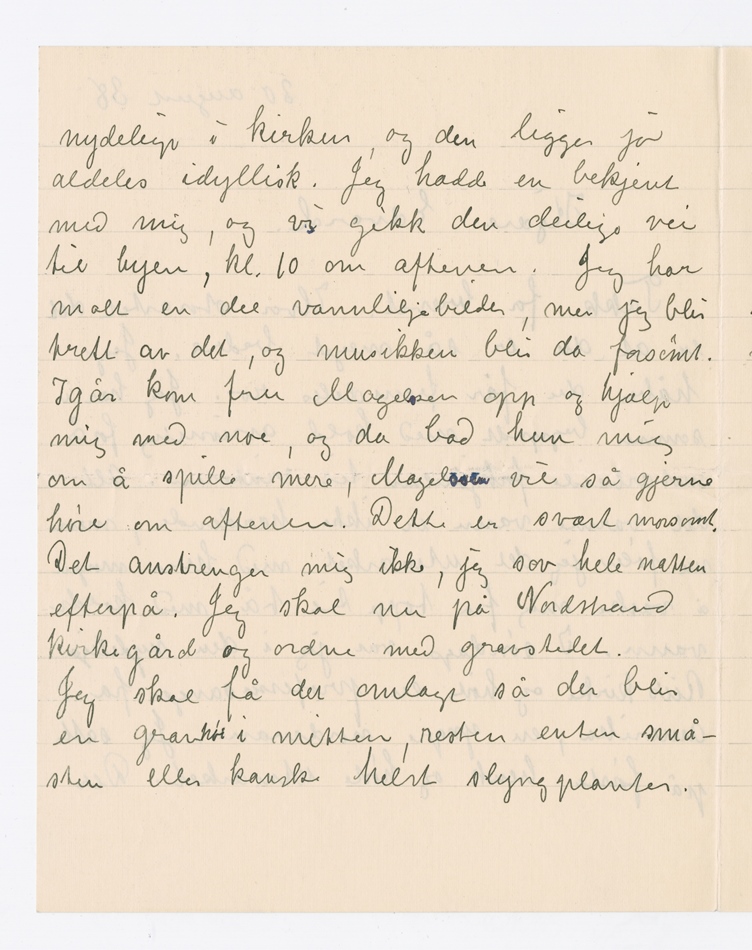 nydelige i kirken, og den ligger jo
aldeles idyllisk. Jeg hadde en bekjent
med mig, og vi gikk den deilige vei
til byen, kl. 10 om aftenen. Jeg har
malt en del vannliljebilder, men jeg blir
trett av det, og musikken blir da forsømt.
Igår kom fru Magelsen opp og hjalp
mig med noe, og da bad hun mig
om å spille mere, Magelssen vil så gjerne
høre om aftenen. Dette er svært morsomt.
Det anstrenger mig ikke, jeg sov hele natten
efterpå. Jeg skal nu på Nordstrand
Kirkegård og ordne med gravstedet.
Jeg skal få det omlagt så der blir
en gravhøi i mitten, resten enten små-
sten eller kanske helst slyngplanter.